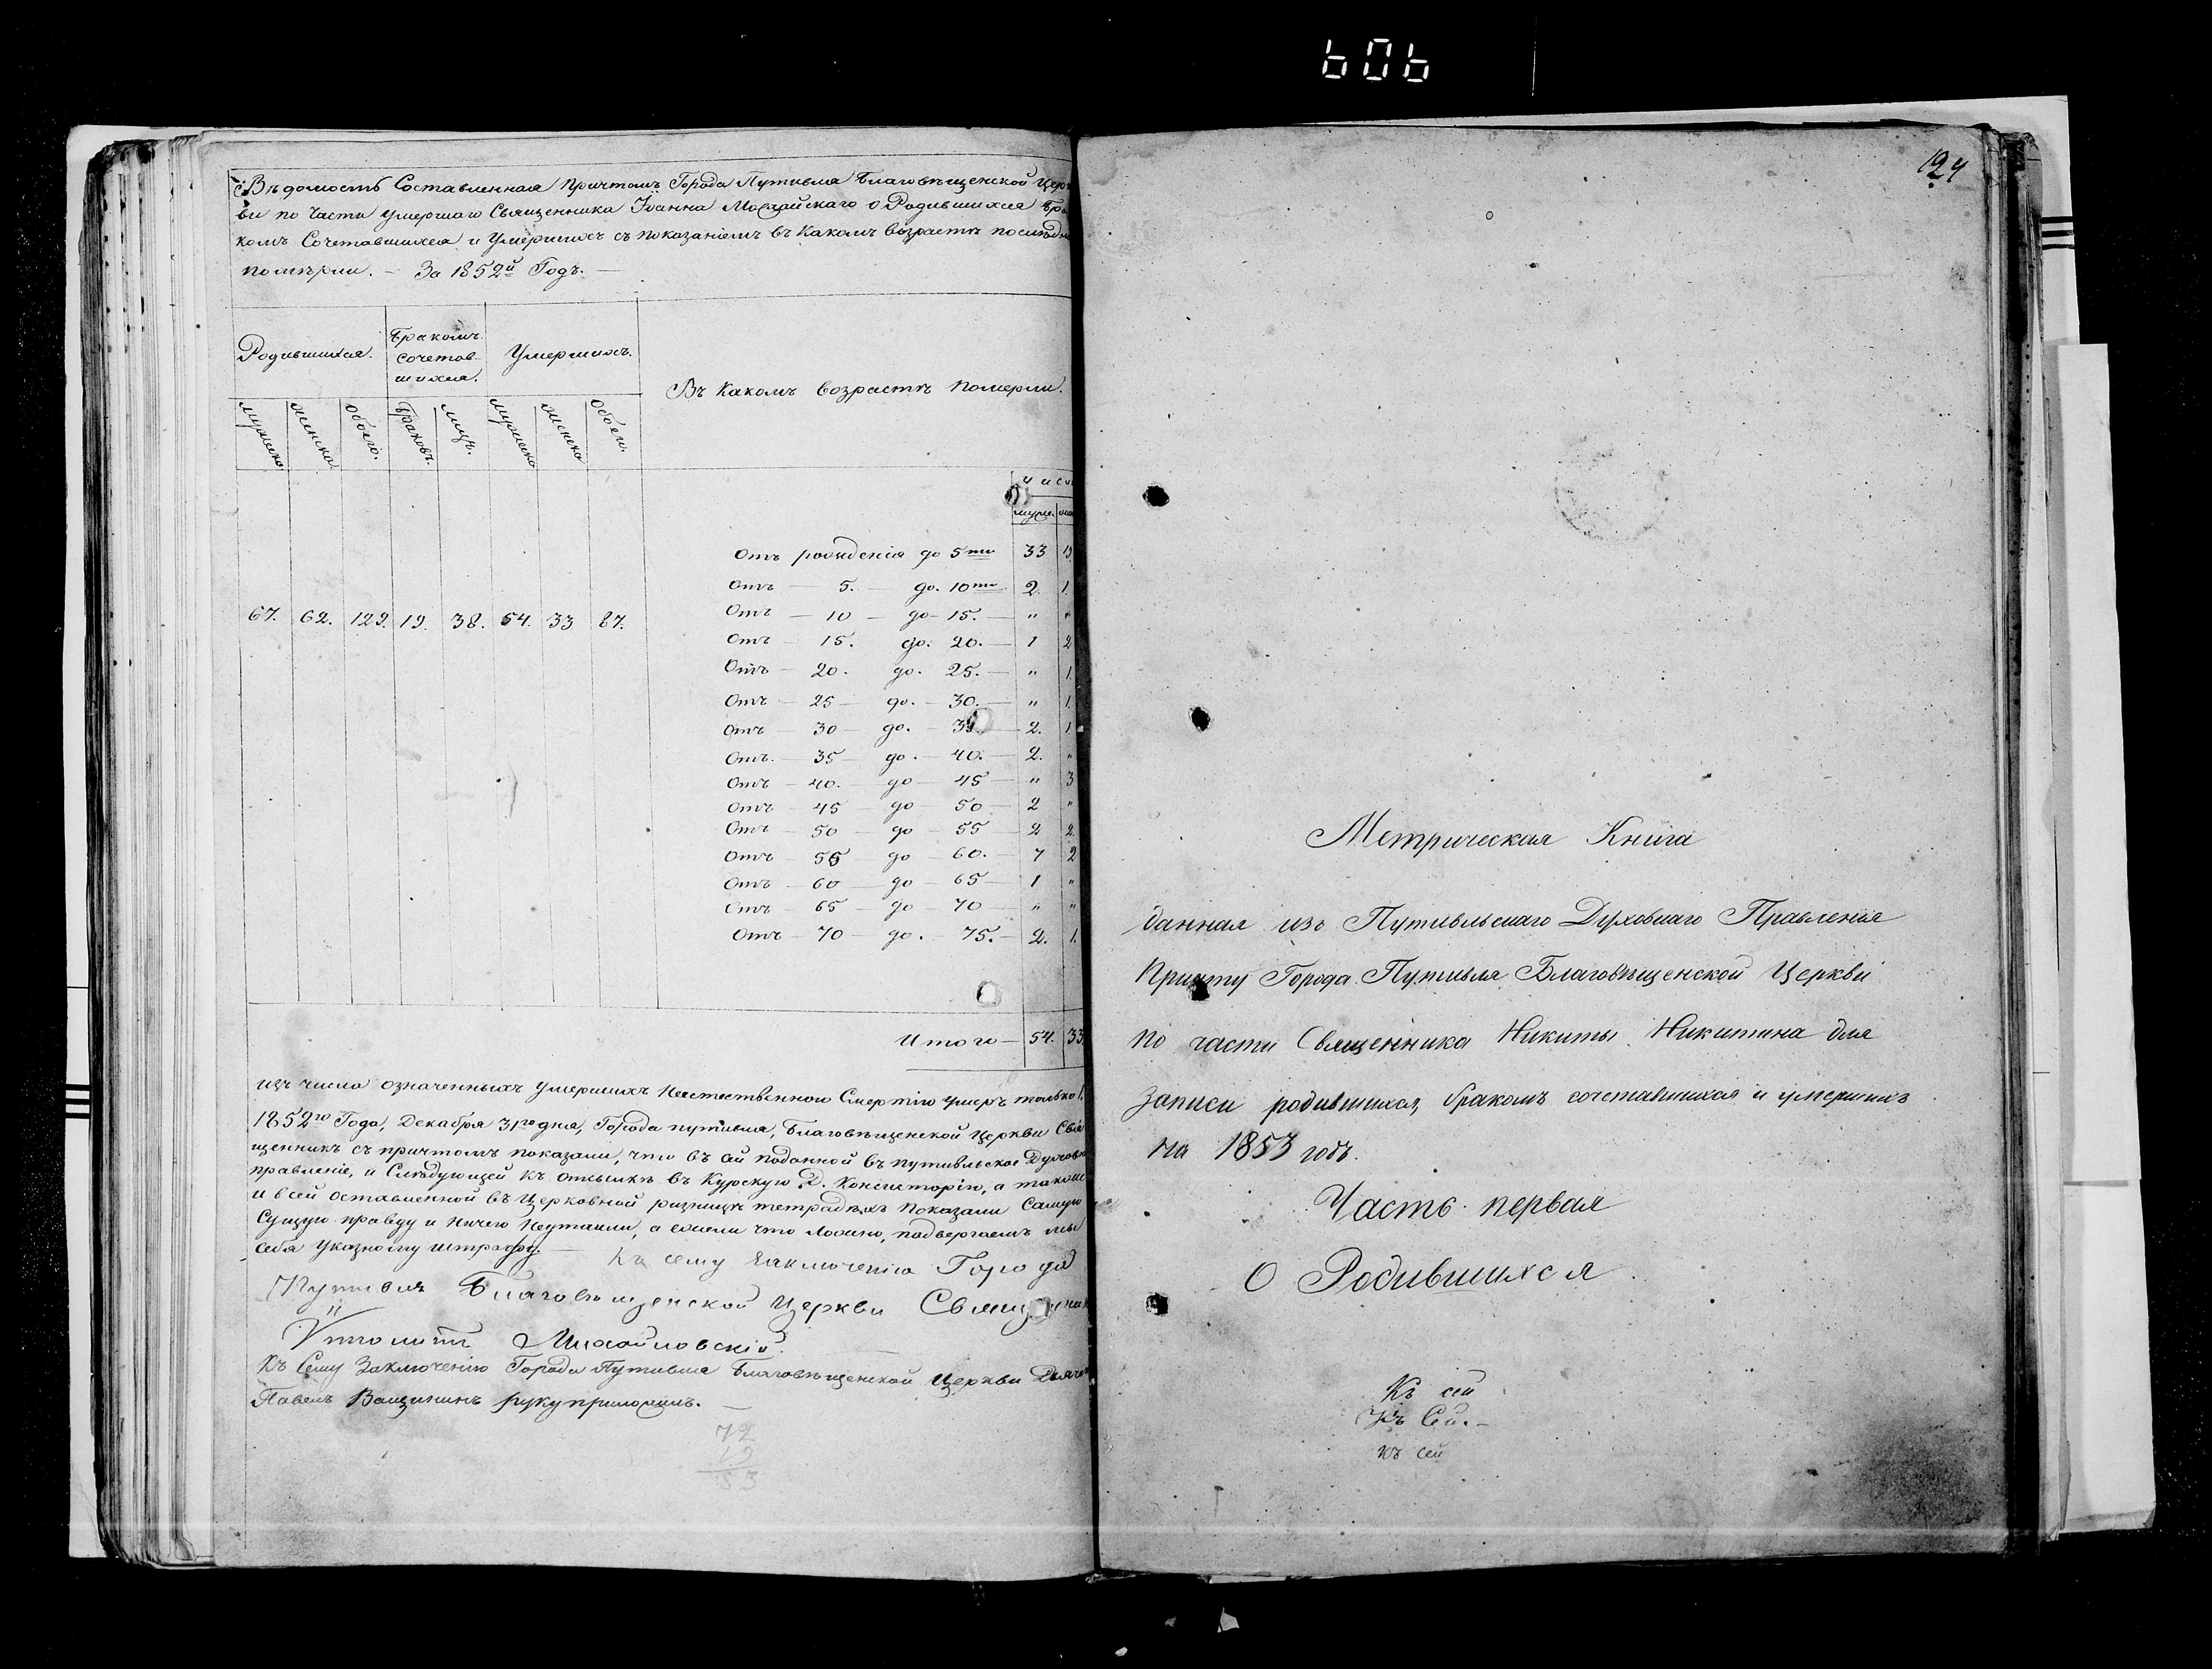 606
Вѣдомость Составленная Причтомъ Города Путивля Благовѣщенской Церк
ви по Части умершаго Священника Іоанна Можайскаго о Родившихся Бра
комъ Сочетавшихся и Умершихъ съ показаніемъ въ Какомъ возрастѣ послѣдн
помѣрли. — За 1852й Годъ. —
Родившихся. Бракомъ сочетав- шихся. Умершихъ. Въ Какомъ возрастѣ померли.
мужеска женска обоего. Браковъ. лицъ. мужеска женска обоего.
числ
муж. жен
Отъ рожденія до 5ти 33 19
Отъ — 5. — до. 10ти 2. 1.
Отъ — 10 — до — 15. — " "
67. 62. 129. 19. 38. 54. 33 87.
Отъ — 15. до. 20. — 1 2
Отъ — 20. до. 25. — " 1.
Отъ — 25 — до. — 30. — " 1.
Отъ — 30 — до. — 35 — 2. 1.
Отъ. — 35 — до. — 40. — 2. "
Отъ — 40. — до — 45 — " 3
Отъ — 45 — до — 50 — 2 "
Отъ — 50 — до — 55 — 2 2.
Отъ — 55 — до — 60. — 7 2
Отъ — 60 — до — 65 — 1 "
Отъ — 65 — до — 70 — " "
Отъ — 70 — до. — 75. — 2. 1.
Итого — 54. 33.
изъ числа означенныхъ умершихъ Неестественною Смертію умеръ только 1.
1852го Года, Декабря 31го дня, Города путивля, Благовѣщенской Церкви Свя
щенникъ съ причтомъ показали, что въ сей поданной въ путивльское Духовн
правленіе, и Слѣдующей къ отсылкѣ въ Курскую Д. Консисторію, а также
и въ сей оставленной въ Церковной ризницѣ тетрадяхъ показали Самую
Сущую правду и ничего Неутаили, а ежели что ложно, подвергаемъ мы
себя Указному штрафу. — Къ сему заключенію Города
Путивля Благовѣщенской Церкви Священник
Ипполитъ Михайловскій.
Къ Сему Заключенію Города Путивля Благовѣщенской Церкви Дьяч
Павелъ Ващининъ руку приложилъ. —
72
19
53
124
Метрическая Книга
данная изъ Путивльскаго Духовнаго Правленія
Причту Города Путивля Благовѣщенской Церкви
по части Священника Никиты Никитина для
записи родившихся, бракомъ сочетавшихся и умершихъ
на 1853 годъ.
Часть первая
О Родившихся
Къ сей
Къ Сей. —
Къ сей